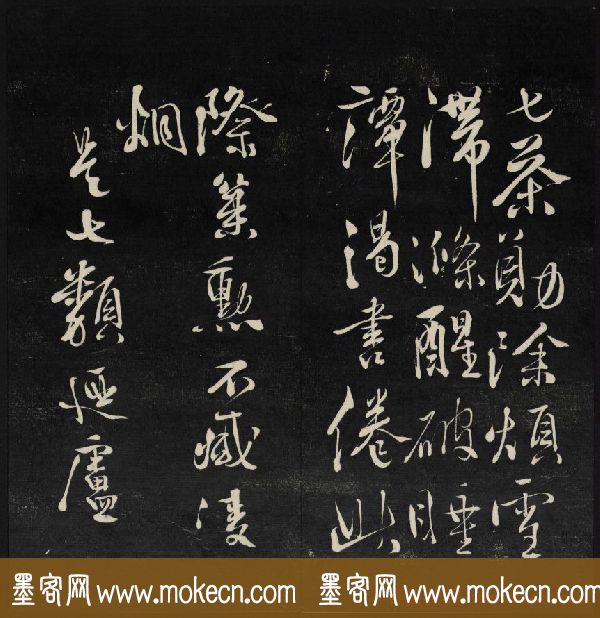 七茶勛除煩雪
滯滌醒破睡
譚渴書倦此
際策勳不減凌
烟
是七類迺盧
墨客网 www.mokecn.com 墨客网 www.mokecn.com